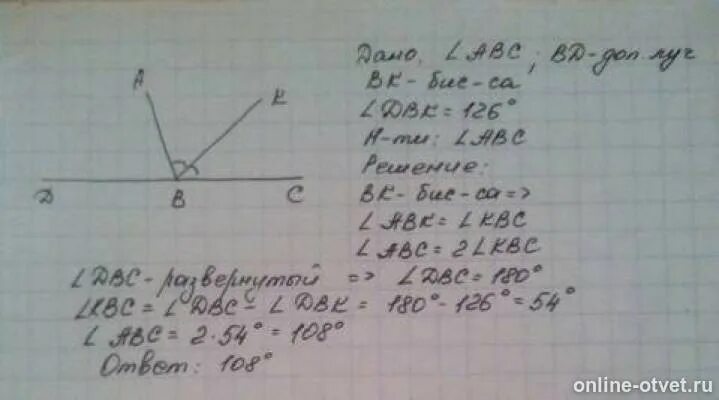 A
K
D
B
C
Дано: ∠ABC; BD-доп. луч
BK-бис-са
∠DBK=126°
Н-ти: ∠ABC
Решение:
BK-бис-са=>
∠ABK=∠KBC
∠ABC=2∠KBC
∠DBC-развернутый => ∠DBC=180°
∠KBC=∠DBC-∠DBK=180°-126°=54°
∠ABC=2·54°=108°
Ответ: 108°
online-otvet.ru